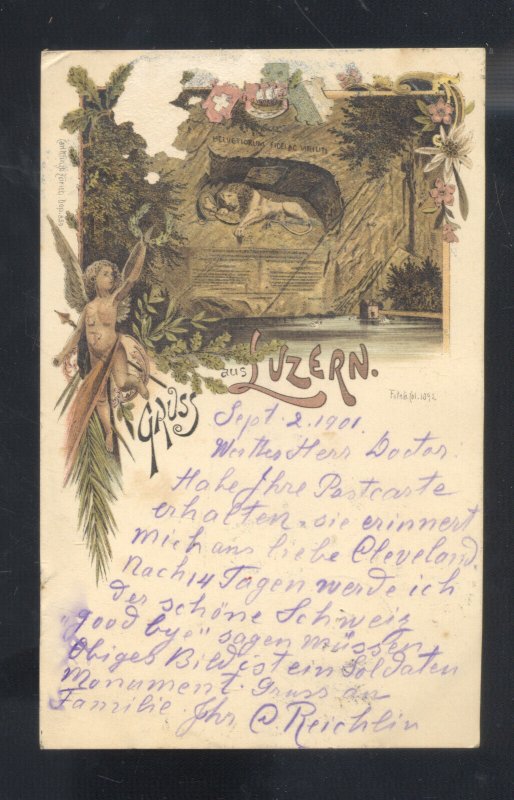 HELVETIORUM FIDEI AC VIRTUTI
GRUSS aus LUZERN.
Sept. 2. 1901.
Werthes Herr Doctor.
Habe Ihre Postcarte
erhalten, sie erinnert
mich ans liebe Cleveland.
Nach 14 Tagen werde ich
der schöne Schweiz
"good bye" sagen müssen
Obiges Bild ist ein Soldaten
Monument. Gruss an
Familie. Ihr C. Reichlin